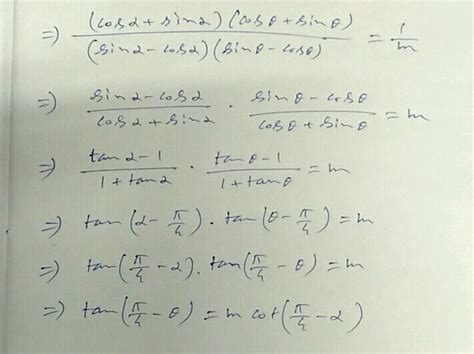 ⇒ (cosα + sinα)(cosθ + sinθ) / (sinα - cosα)(sinθ - cosθ) = 1/m
⇒ sinα - cosα / cosα + sinα · sinθ - cosθ / cosθ + sinθ = m
⇒ tanα - 1 / 1 + tanα · tanθ - 1 / 1 + tanθ = m
⇒ tan(α - π/4) · tan(θ - π/4) = m
⇒ tan(π/4 - α) · tan(π/4 - θ) = m
⇒ tan(π/4 - θ) = m cot(π/4 - α)